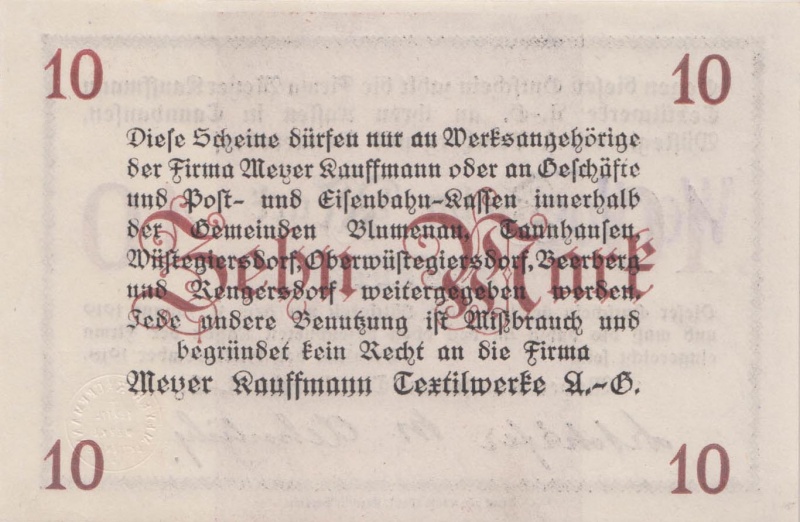 10 10
Diese Scheine dürfen nur an Werksangehörige
der Firma Meyer Kauffmann oder an Geschäfte
und Post- und Eisenbahn-Kassen innerhalb
der Gemeinden Blumenau, Tannhausen,
Wüstegiersdorf, Oberwüstegiersdorf, Beerberg
und Rengersdorf weitergegeben werden.
Jede andere Benutzung ist Mißbrauch und
begründet kein Recht an die Firma
Meyer Kauffmann Textilwerke A.-G.
Zehn Mark
10 10